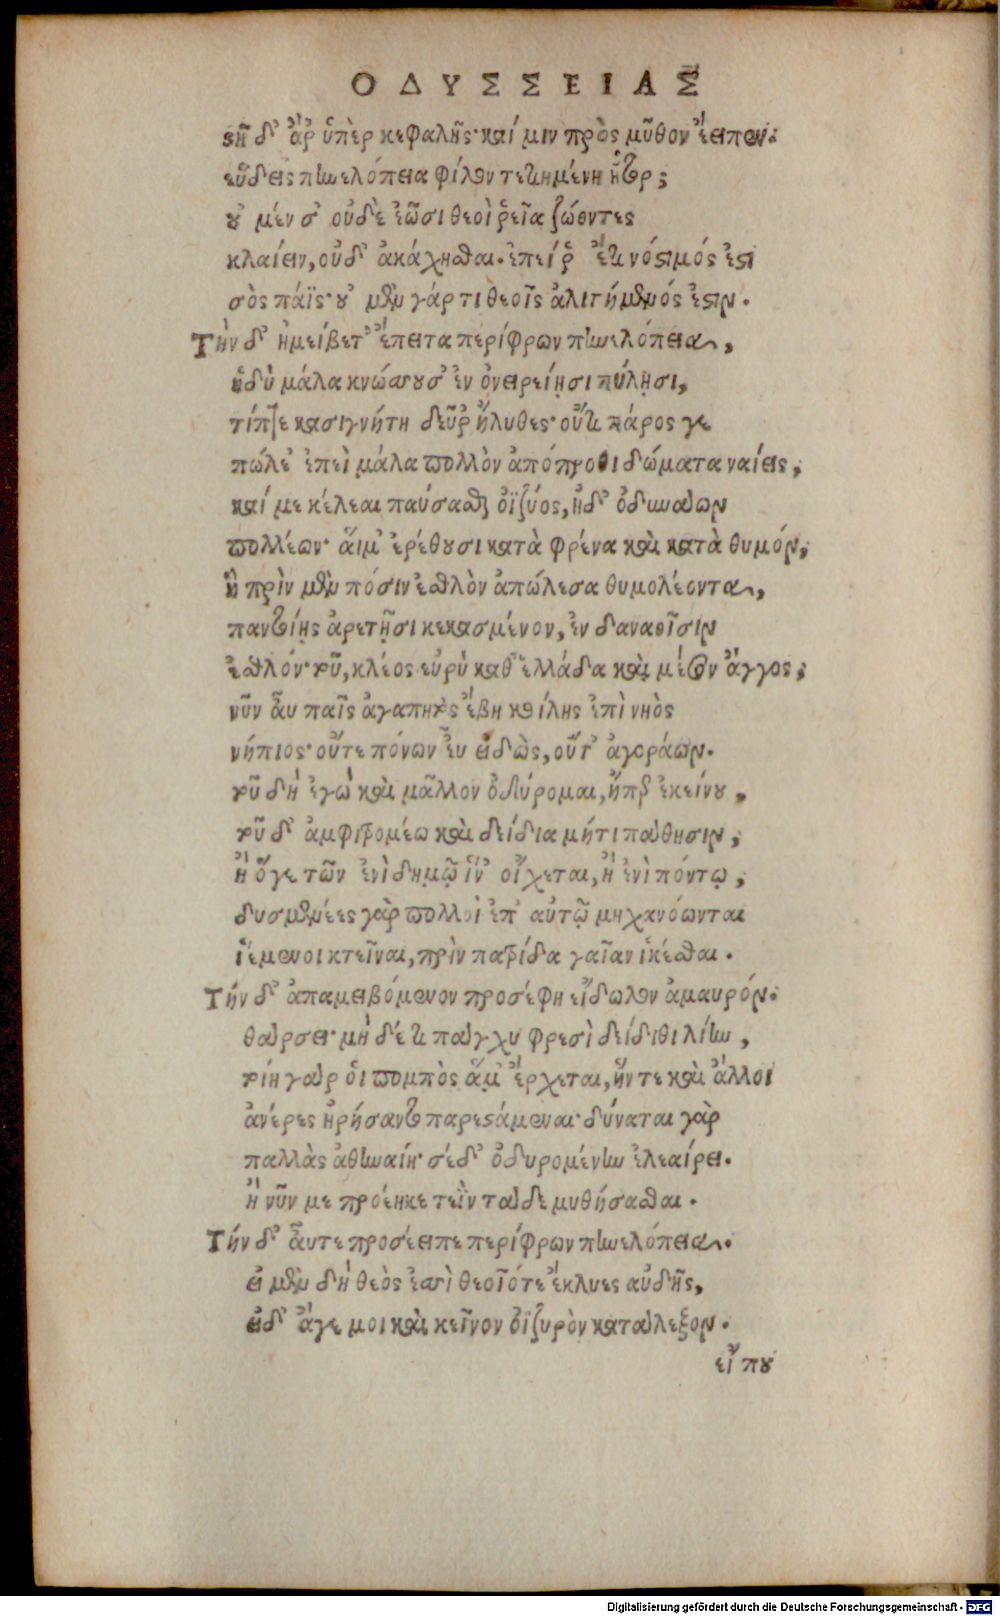 ΟΔΥΣΣΕΙΑΣ
στῆ δ' ἂρ ὑπὲρ κεφαλῆς· καί μιν πρὸς μῦθον ἔειπεν·
εὕδεις πηνελόπεια φίλον τετιημένη ἦτορ;
οὐ μέν σ' οὐδὲ ἐῶσι θεοὶ ῥεῖα ζώοντες
κλαίειν, οὐδ' ἀκάχησθαι. ἐπεί ῥ' ἔτι νόστιμός ἐστι
σὸς πάϊς· οὐ μὲν γάρ τι θεοῖς ἀλιτήμενός ἐστιν.
Τὴν δ' ἠμείβετ' ἔπειτα περίφρων πηνελόπεια,
ἡδὺ μάλα κνώσσουσ' ἐν ὀνειρείῃσι πύλῃσι,
τίπτε κασιγνήτη δεῦρ' ἤλυθες· οὔτι πάρος γε
πώλε' ἐπεὶ μάλα πολλὸν ἀπόπροθι δώματα ναίεις,
καί με κέλεαι παύσασθαι ὀϊζύος, ἠδ' ὀδυνάων
πολλέων· αἵ μ' ἐρέθουσι κατὰ φρένα καὶ κατὰ θυμόν,
ἣ πρὶν μὲν πόσιν ἐσθλὸν ἀπώλεσα θυμολέοντα,
παντοίῃς ἀρετῇσι κεκασμένον, ἐν δαναοῖσιν
ἐσθλόν· τοῦ, κλέος εὐρὺ καθ' ἑλλάδα καὶ μέσον ἄργος,
νῦν αὖ παῖς ἀγαπητὸς ἔβη κοίλης ἐπὶ νηὸς
νήπιος· οὔτε πόνων εὖ εἰδὼς, οὔτ' ἀγοράων.
τοῦ δὴ ἐγὼ καὶ μᾶλλον ὀδύρομαι, ἤπερ ἐκείνου,
τοῦ δ' ἀμφιτρομέω καὶ δείδια μήτι πάθησιν,
ἢ ὅγε τῶν ἐνὶ δημῷ ἵν' οἴχεται, ἢ ἐνὶ πόντῳ,
δυσμενέες γὰρ πολλοὶ ἐπ' αὐτῷ μηχανόωνται
ἱέμενοι κτεῖναι, πρὶν πατρίδα γαῖαν ἱκέσθαι.
Τήν δ' ἀπαμειβόμενον προσέφη εἴδωλον ἀμαυρόν.
θάρσει· μὴ δέ τι πάγχυ φρεσὶ δείδιθι λίην,
τοίη γάρ οἱ πομπὸς ἅμ' ἔρχεται, ἥν τε καὶ ἄλλοι
ἀνέρες ἠρήσαντο παρεστάμεναι· δύναται γὰρ
παλλὰς ἀθηναίη· σέ δ' ὀδυρομένην ἐλεαίρει.
ἣ νῦν με προέηκε τεῒν τάδε μυθήσασθαι.
Τήν δ' αὖτε προσέειπε περίφρων πηνελόπεια.
εἰ μὲν δὴ θεὸς ἐσσὶ θεοῖό τε ἔκλυες αὐδῆς,
εἰδ' ἄγε μοι καὶ κεῖνον ὀϊζυρὸν κατάλεξον.
εἴ που
Digitalisierung gefördert durch die Deutsche Forschungsgemeinschaft - DFG